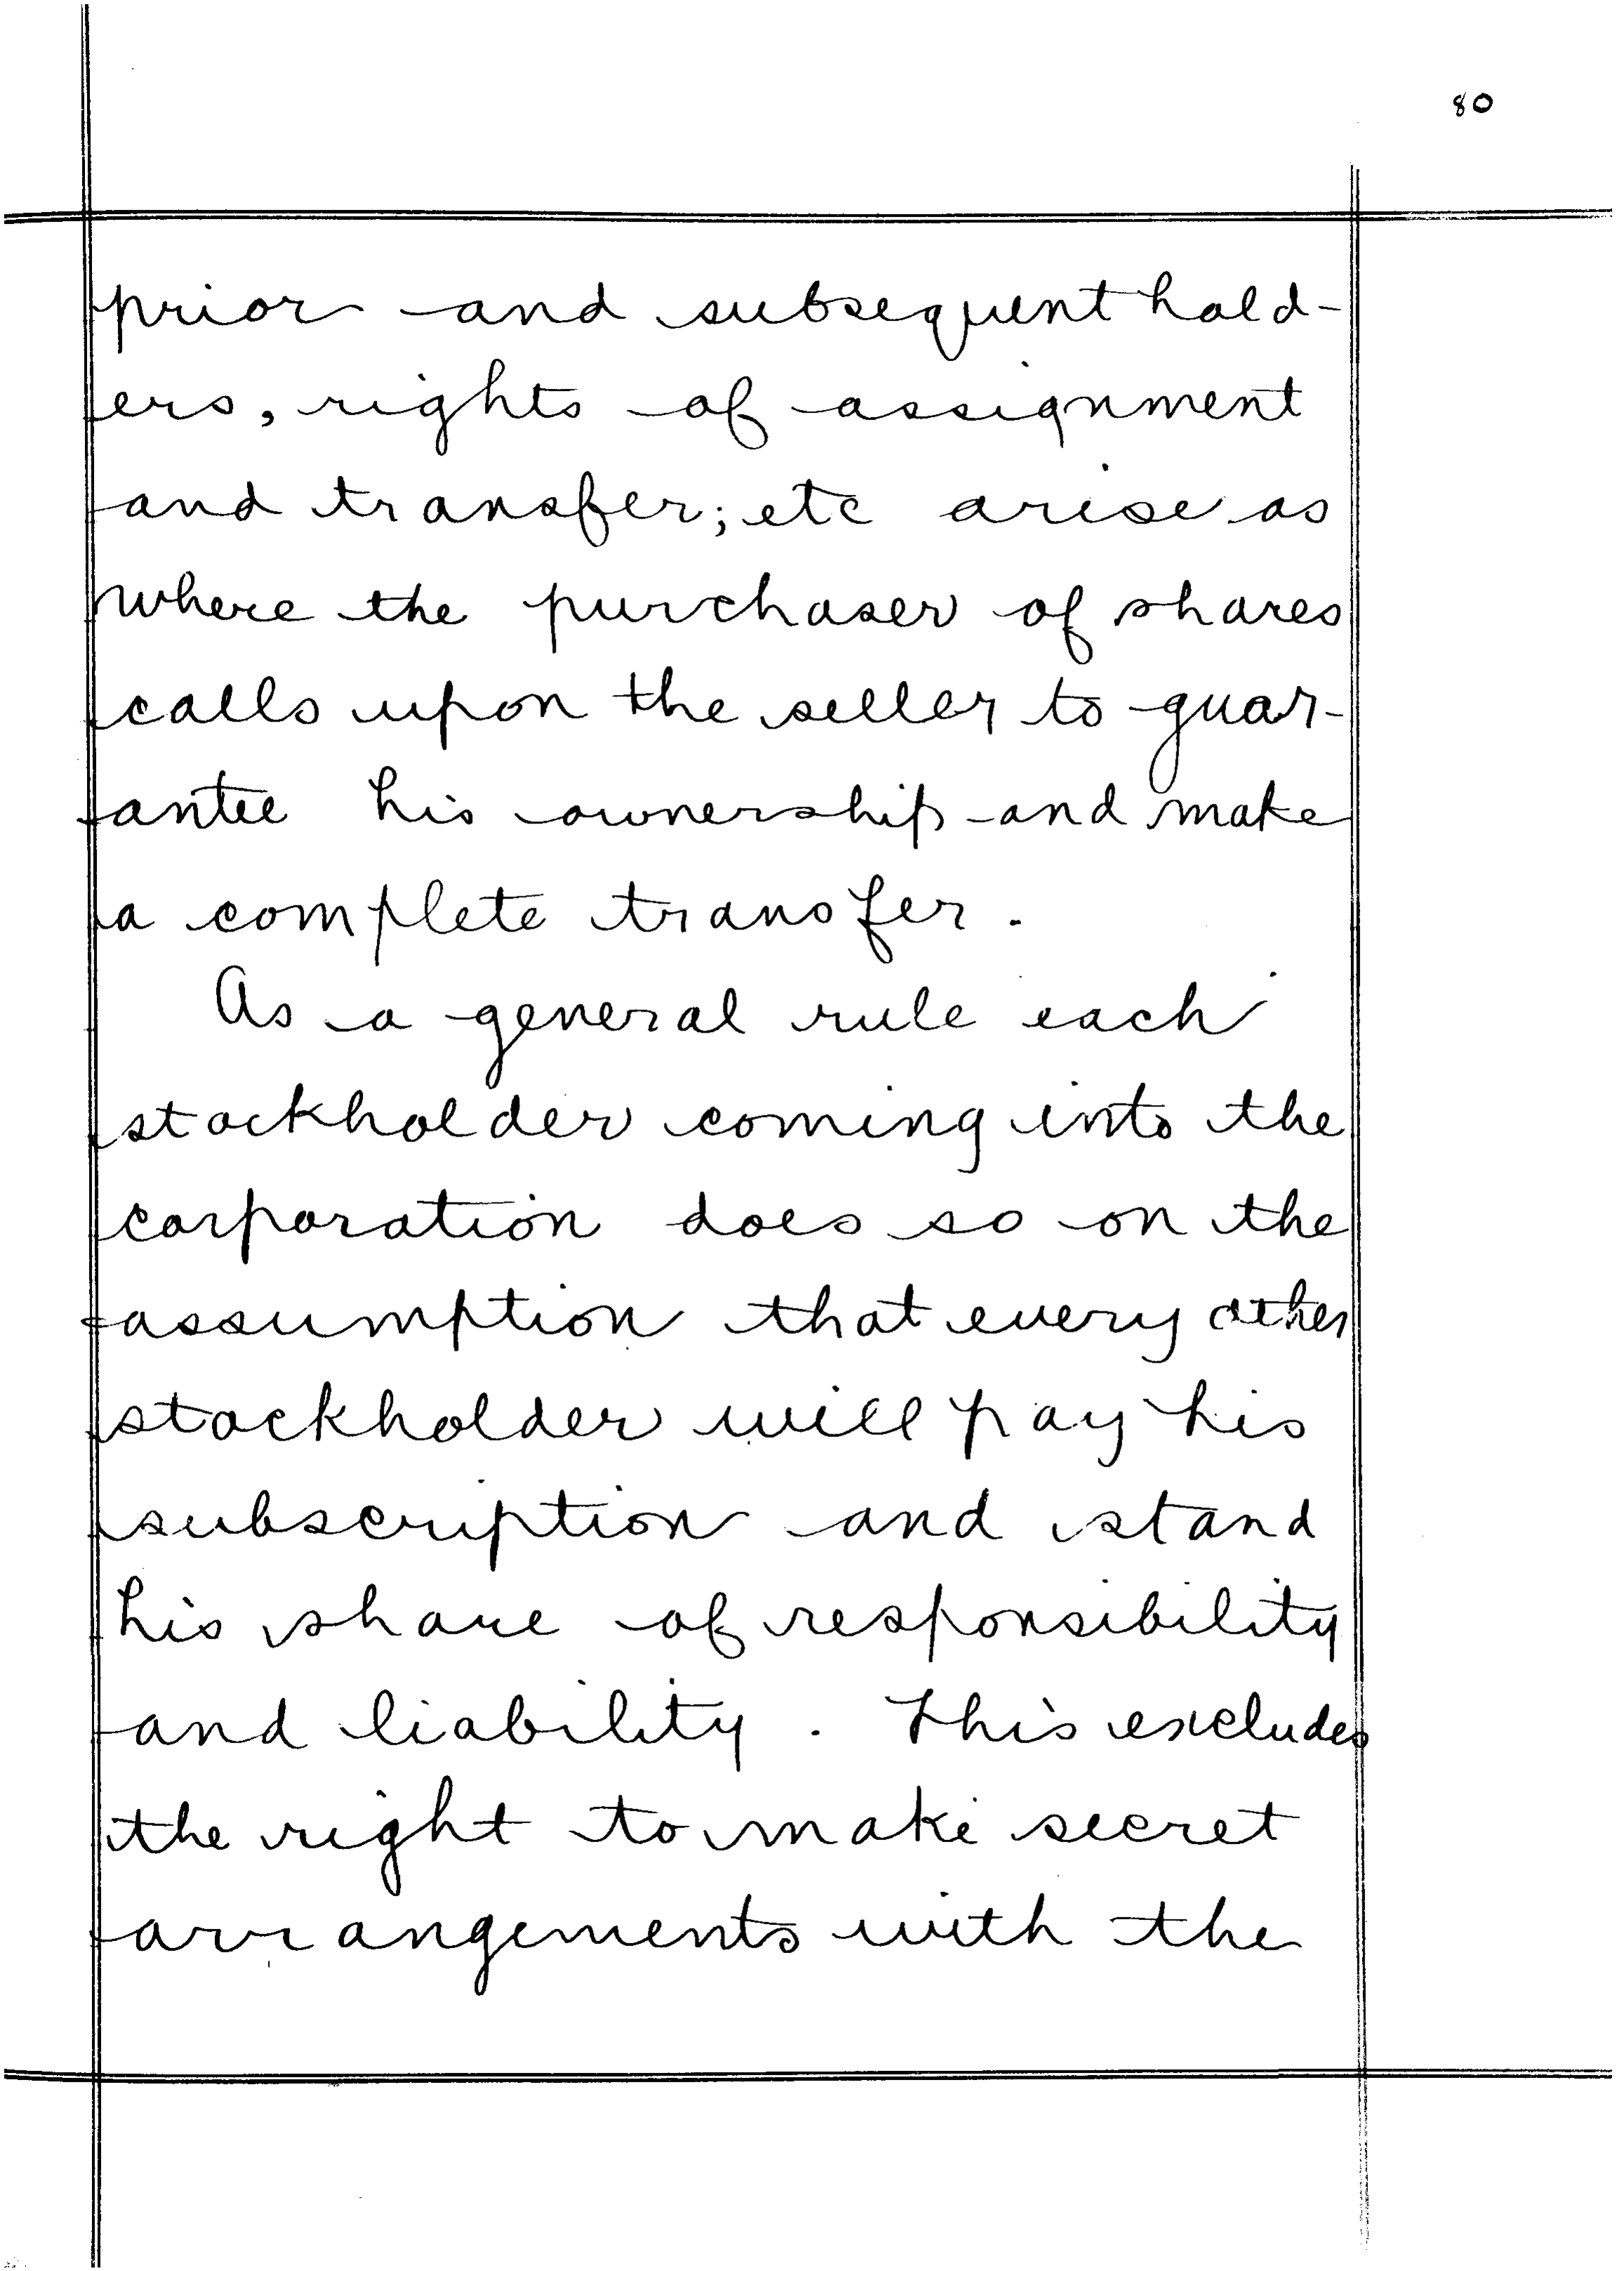 80
prior and subsequent hold-
ers, rights of assignment
and transfer; etc arise as
where the purchaser of shares
calls upon the seller to guar-
antee his ownership and make
a complete transfer.
As a general rule each
stockholder coming into the
corporation does so on the
assumption that every other
stockholder will pay his
subscription and stand
his share of responsibility
and liability. This excludes
the right to make secret
arrangements with the